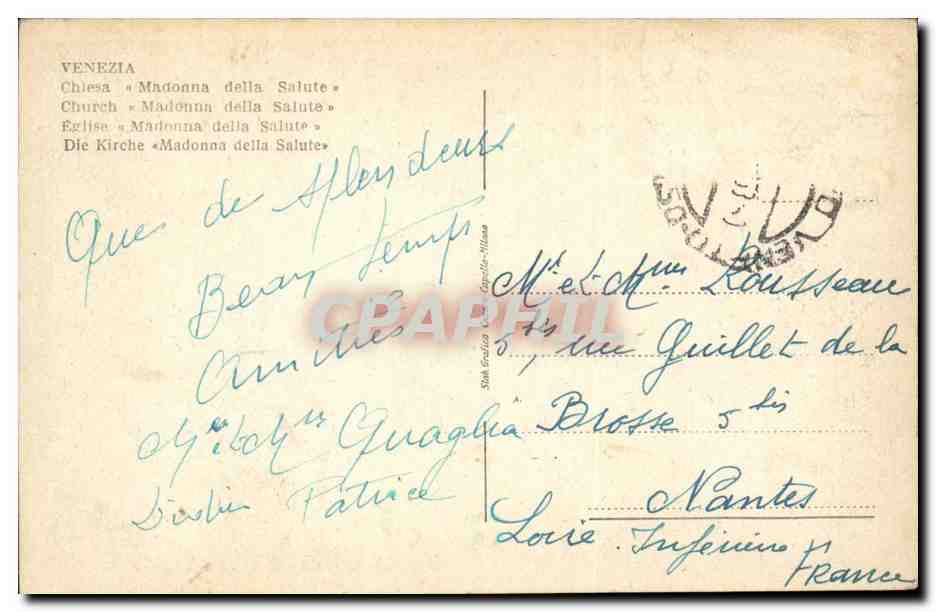 VENEZIA
Chiesa « Madonna della Salute »
Church « Madonna della Salute »
Église « Madonna della Salute »
Die Kirche «Madonna della Salute»
Que de splendeurs
Beau temps
Amitiés
Mr et Mme Quaglia
Didier Patrice
Stab. Grafico Cesare Capello - Milano
CPAPHIL
VENETO
Mr et Mme Rousseau
5bis, rue Guillet de la
Brosse 5bis
Nantes
Loire Inférieure
France